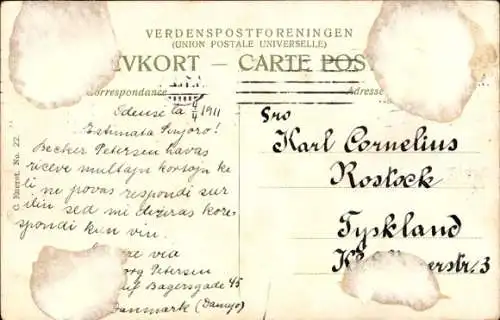 VERDENSPOSTFORENINGEN
(UNION POSTALE UNIVERSELLE)
EVKORT — CARTE POS
Correspondance
Adresse
Odense la 4/4 1911
Estimata Sinjoro!
Becker Petersen havas
riceve multajn kartojn ke
li ne povas respondi sur
ĉin sed mi deziras kore
spondi kun vin.
via
org Petersen
Bagersgade 45
Danmark (Danujo)
Sro
Karl Cornelius
Rostock
Tyskland
erstr. 3
C. Enerst. No. 22.